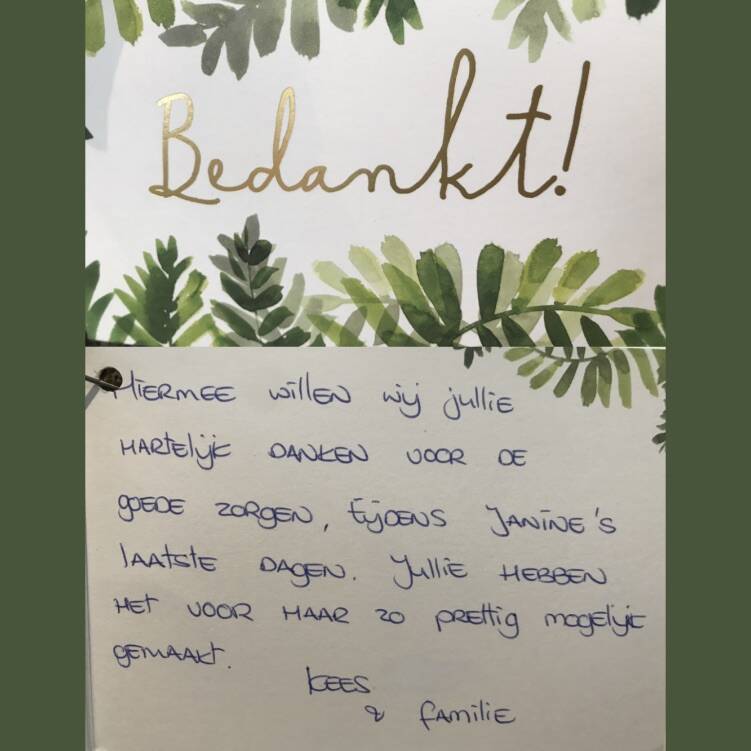 Bedankt!
Hiermee willen wij jullie
hartelijk danken voor de
goede zorgen, tijdens Janine's
laatste dagen. Jullie hebben
het voor haar zo prettig mogelijk
gemaakt.
Kees
& familie